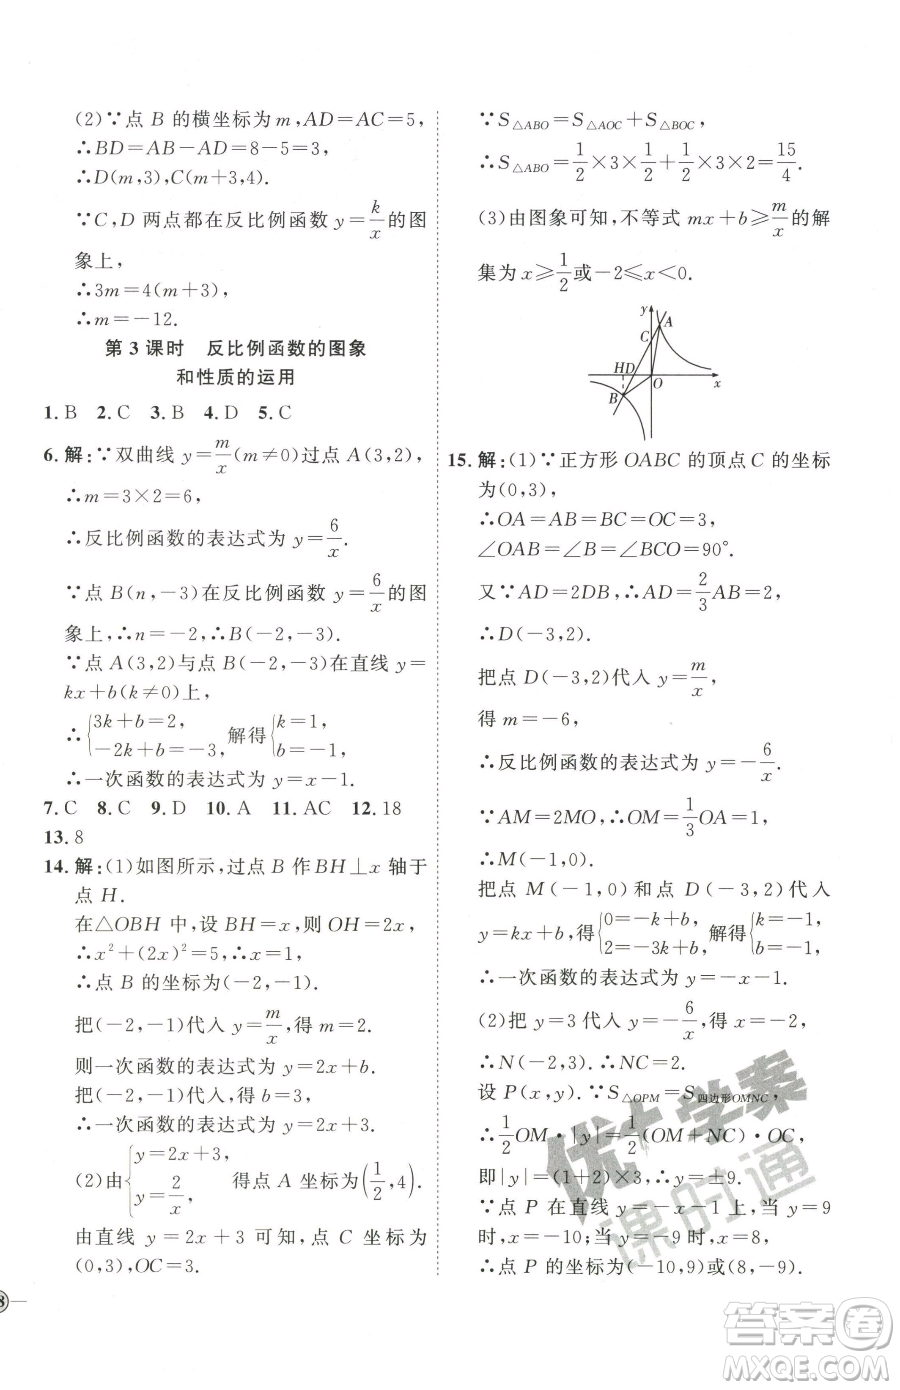 (2)∵点 B 的横坐标为 m,AD=AC=5,
∴BD=AB-AD=8-5=3,
∴D(m,3),C(m+3,4).
∵C,D 两点都在反比例函数 y=k/x 的图
象上,
∴3m=4(m+3),
∴m=-12.
第 3 课时 反比例函数的图象
和性质的运用
1.B 2.C 3.B 4.D 5.C
6.解:∵双曲线 y=m/x(m≠0)过点 A(3,2),
∴m=3×2=6,
∴反比例函数的表达式为 y=6/x.
∵点 B(n,-3)在反比例函数 y=6/x 的图
象上,∴n=-2,∴B(-2,-3).
∵点 A(3,2)与点 B(-2,-3)在直线 y=
kx+b(k≠0)上,
∴{3k+b=2, -2k+b=-3, 解得{k=1, b=-1.
∴一次函数的表达式为 y=x-1.
7.C 8.C 9.D 10.A 11.AC 12.18
13.8
14.解:(1)如图所示,过点 B 作BH⊥x 轴于
点 H.
在△OBH 中,设 BH=x,则 OH=2x,
∴x²+(2x)²=5,∴x=1,
∴点 B 的坐标为(-2,-1).
把(-2,-1)代入 y=m/x,得 m=2.
则一次函数的表达式为 y=2x+b.
把(-2,-1)代入,得 b=3,
∴一次函数的表达式为 y=2x+3.
(2)由{y=2x+3, y=2/x, 得点 A 坐标为(1/2,4).
由直线 y=2x+3 可知,点 C 坐标为
(0,3),∴OC=3.
∵S△ABO=S△AOC+S△BOC,
∴S△ABO=1/2×3×1/2+1/2×3×2=15/4.
(3)由图象可知,不等式 mx+b≥m/x的解
集为 x≥1/2或-2≤x<0.
y
A
C
HD
O
x
B
15.解:(1)∵正方形 OABC 的顶点 C 的坐标
为(0,3),
∴OA=AB=BC=OC=3,
∠OAB=∠B=∠BCO=90°.
又∵AD=2DB,∴AD=2/3AB=2,
∴D(-3,2).
把点 D(-3,2)代入 y=m/x,
得 m=-6,
∴反比例函数的表达式为 y=-6/x.
∵AM=2MO,∴OM=1/3OA=1,
∴M(-1,0).
把点 M(-1,0)和点 D(-3,2)代入
y=kx+b,得{0=-k+b, 2=-3k+b, 解得{k=-1, b=-1.
∴一次函数的表达式为 y=-x-1.
(2)把 y=3 代入 y=-6/x,得 x=-2,
∴N(-2,3).∴NC=2.
设 P(x,y).∵S△OPM=S四边形OMNC,
∴1/2OM·|y|=1/2(OM+NC)·OC,
即|y|=(1+2)×3,∴y=±9.
∵点 P 在直线 y=-x-1 上,当 y=9
时,x=-10;当 y=-9 时,x=8,
∴点 P 的坐标为(-10,9)或(8,-9).
优+学案
课时通
答案圈
MXQE.COM